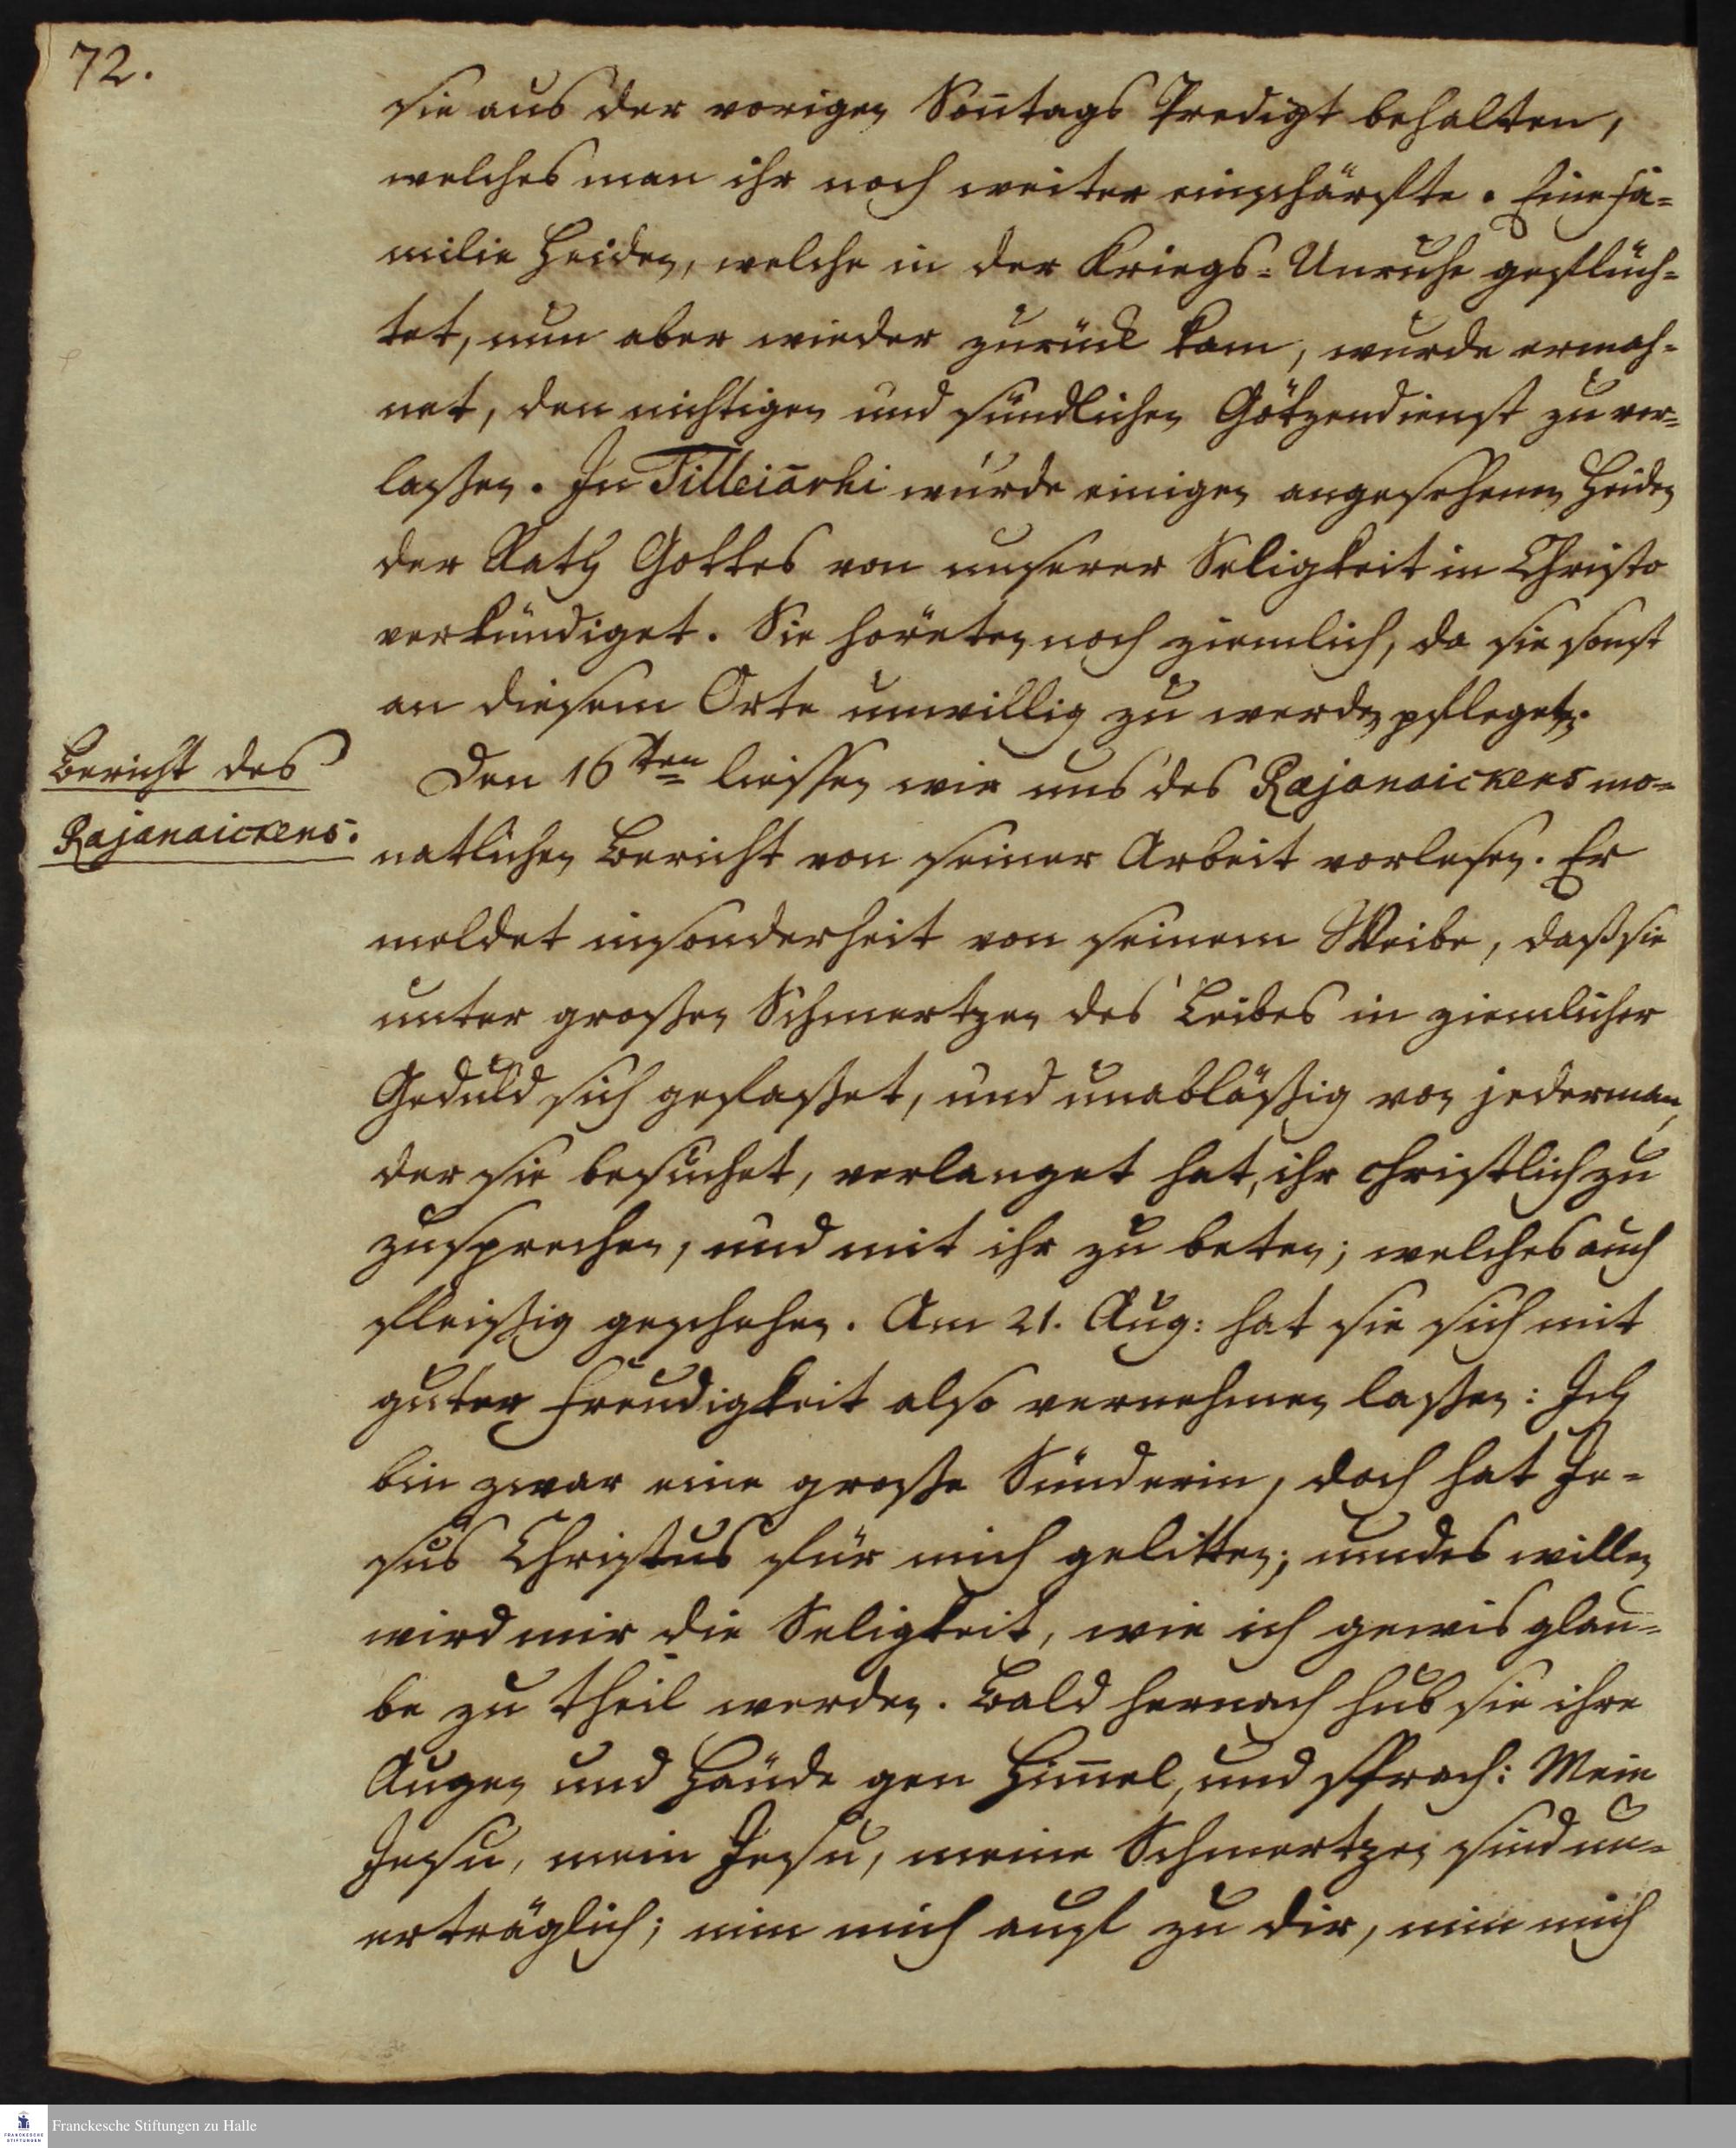 72.
sie aus der vorigen Son̄tags Predigt behalten,
welches man ihr noch weiter einschärfte. Eine Fa-
milie Heiden, welche in der Kriegs-Unruhe geflüch-
tet, nun aber wieder zurück kam, wurde ermah-
net, den nichtigen und sündlichen Götzendienst zu ver-
laßen. In Tilleiārhi wurde einigen angesehenen Heiden
der Rath Gottes von unserer Seligkeit in Christo
verkündiget. Sie höreten noch ziemlich, da sie sonst
an diesem Orte unwillig zu werden pflegeten.
Bericht des
Rajanaickens.
Den 16ten liessen wir uns des Rajanaickens mo-
natlichen Bericht von seiner Arbeit vorlesen. Er
meldet insonderheit von seinem Weibe, daß sie
unter großen Schmertzen des Leibes in ziemlicher
Geduld sich gefaßet, und unabläßig von jederman,
der sie besuchet, verlanget hat, ihr christlich zu
zusprechen, und mit ihr zu beten; welches auch
fleißig geschehen. Am 21. Aug: hat sie sich mit
guter Freudigkeit also vernehmen laßen: Ich
bin zwar eine große Sünderin, doch hat Je-
sus Christus für mich gelitten; um des willen
wird mir die Seligkeit, wie ich gewis glau-
be zu theil werden. Bald hernach hub sie ihre
Augen und Hände gen Him̄el, und sprach: Mein
Jesu, mein Jesu, meine Schmertzen sind un-
erträglich; nim mich auf zu dir, nim mich
Franckesche Stiftungen zu Halle
FRANCKESCHE
STIFTUNGEN